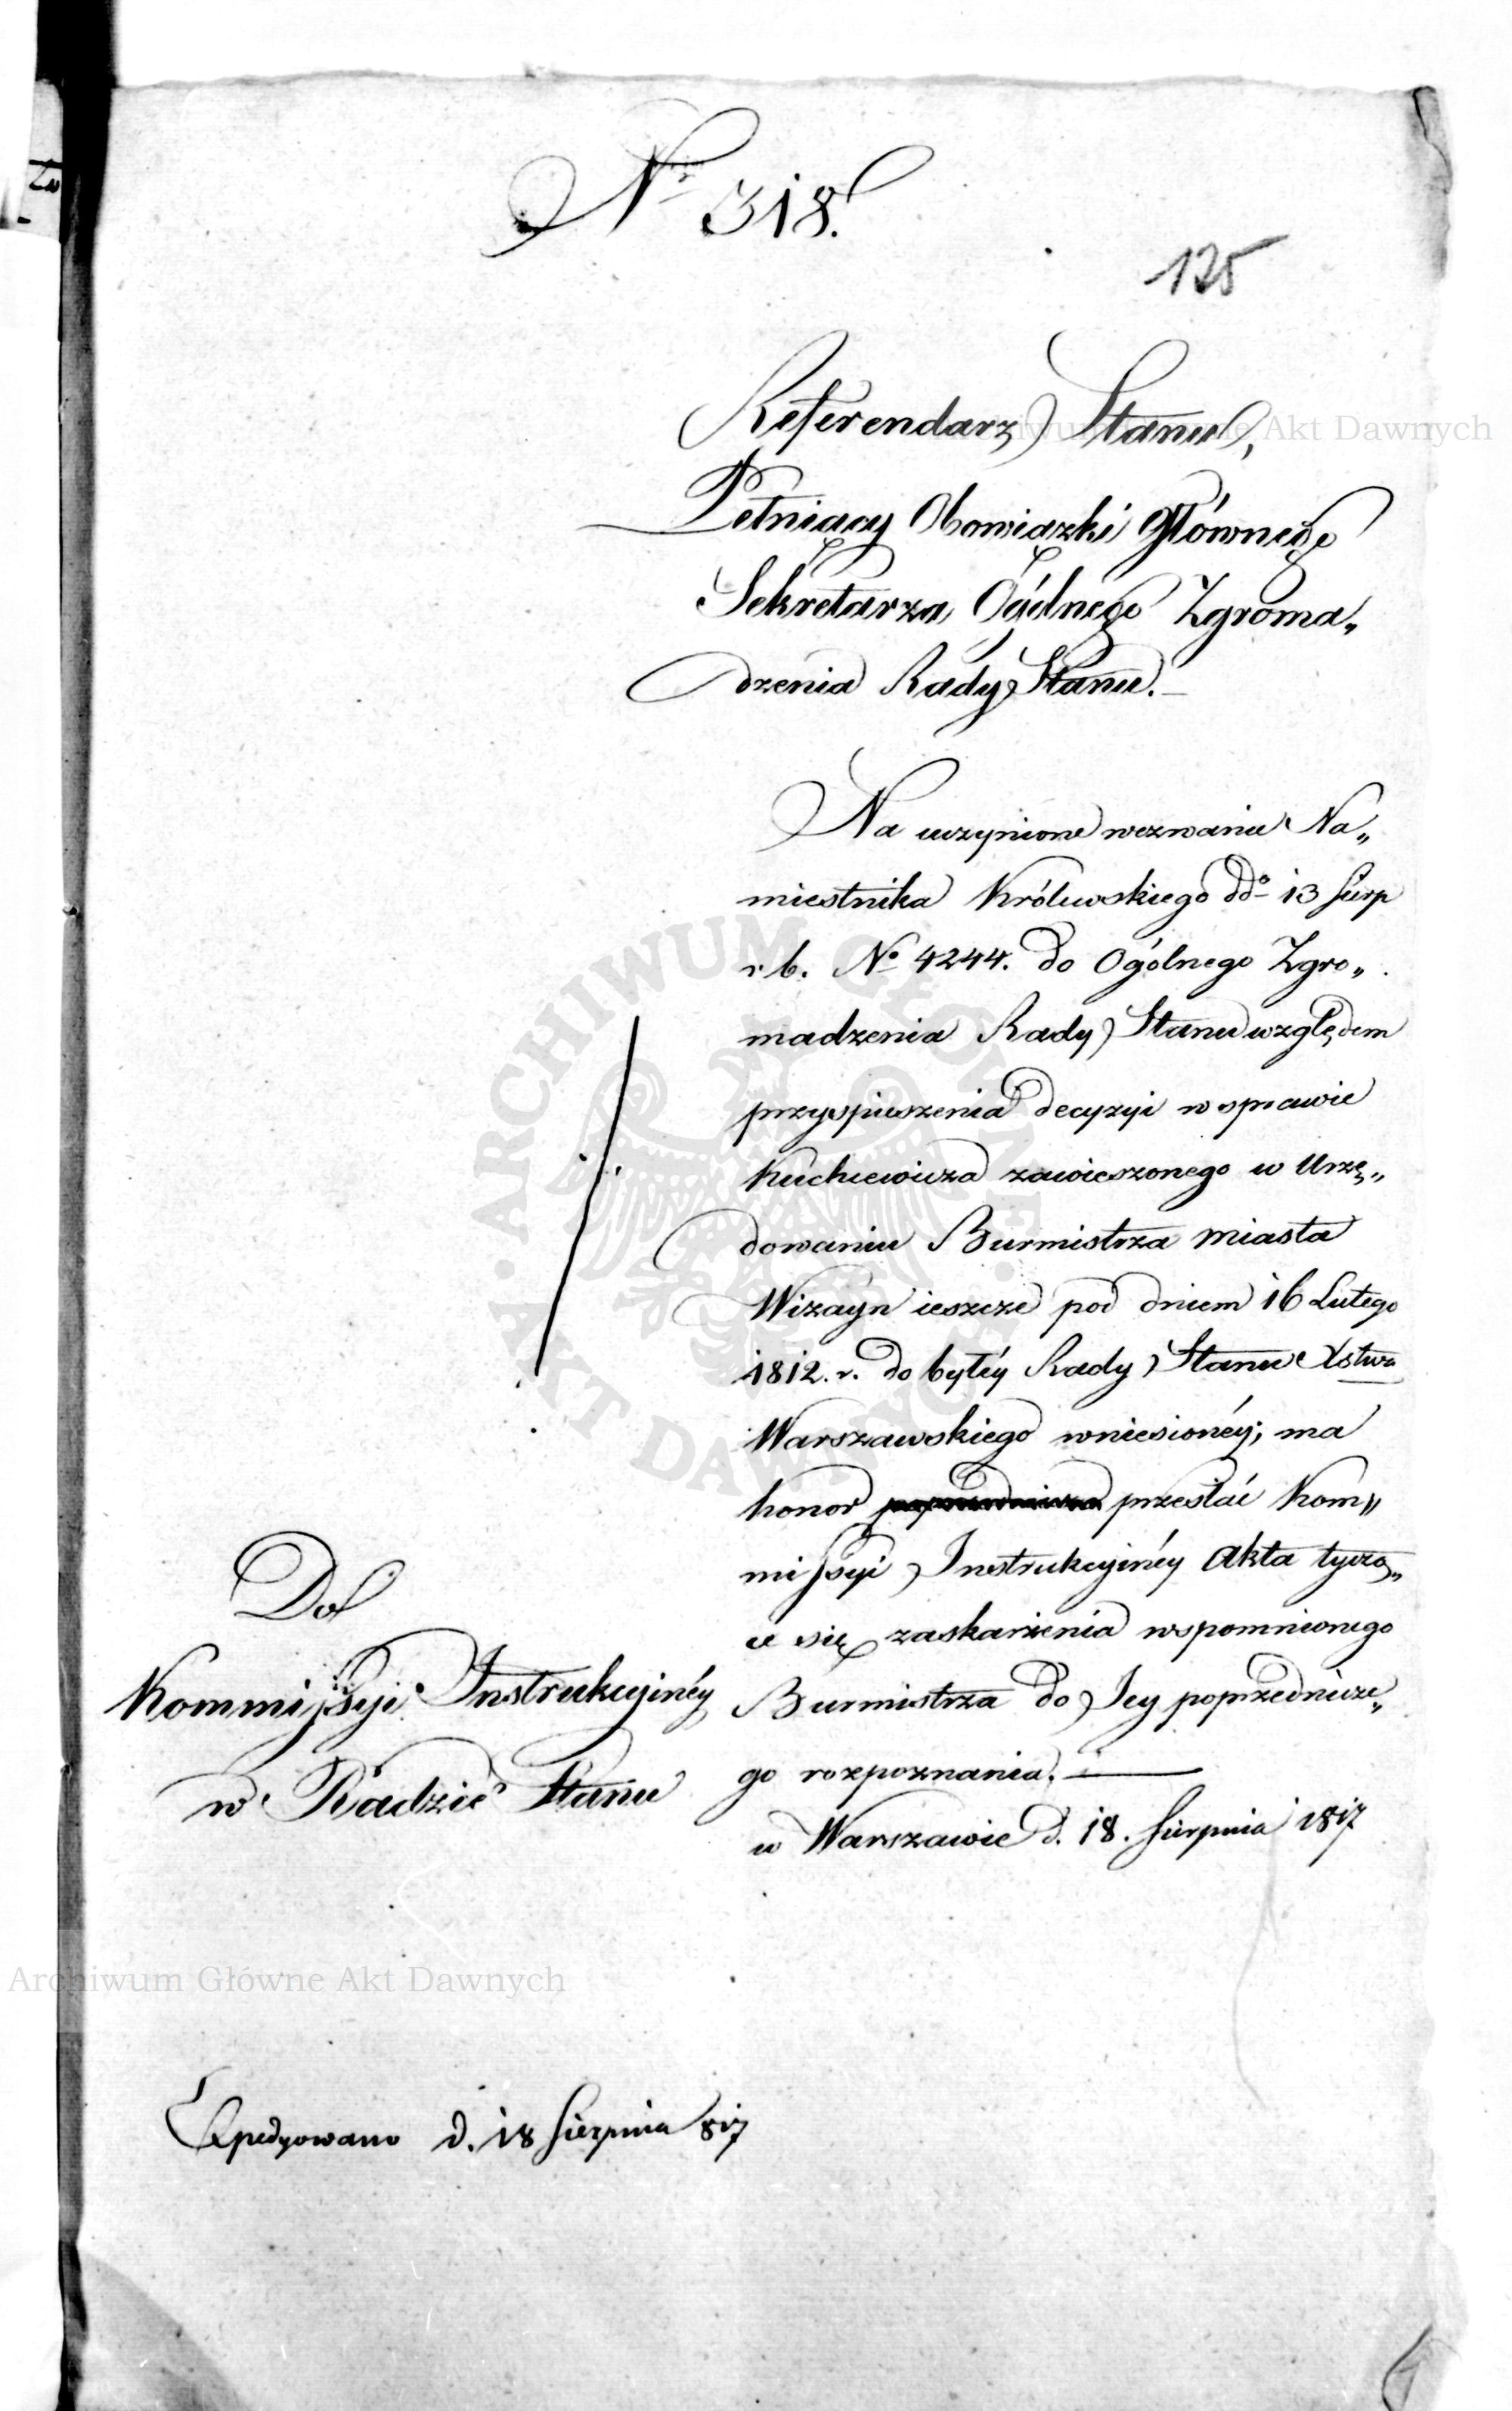 No 318.
125
Referendarz Stanu,
Pełniący Obowiązki Głównego
Sekretarza Ogólnego Zgroma„
dzenia Rady Stanu.
Na uczynione wezwanie Na„
miestnika Królewskiego ddo 13 Sierp
r b. No 4244. do Ogólnego Zgro„
madzenia Rady Stanu względem
przyspieszenia decyzyi w sprawie
Kuchcewicza zawieszonego w Urzę„
dowaniu Burmistrza miasta
Wizayn ieszcze pod dniem 16 Lutego
1812. r. do byłéy Rady Stanu Xstwa
Warszawskiego wniesionéy; ma
honor przesłać Kom„
missyi Instrukcyinéy Akta tyczą„
ce się zaskarżenia wspomnionego
Burmistrza do Jey poprzednicze„
go rozpoznania.
w Warszawie d. 18. Sierpnia 1817
Do
Kommissyi Instrukcyinéy
w Radzie Stanu
Expedyowano d. 18 Sierpnia 817
Archiwum Główne Akt Dawnych
ARCHIWUM GŁÓWNE AKT DAWNYCH
Archiwum Główne Akt Dawnych